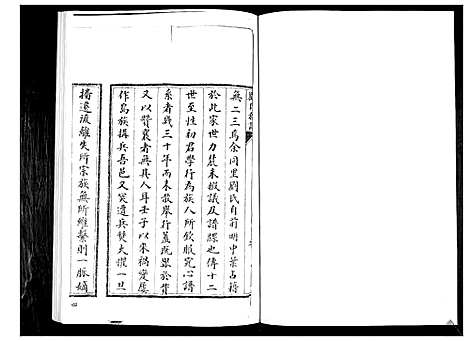 無二三焉余同里劉氏自前明中葉占籍
於此家世力農未擬議及譜繇也傳十二
世至性初君學行為族人所欽服究心譜
系者幾三十年而未敢舉行蓋既艱於貲
又以贊襄者無其人耳壬子以來禍變屢
作烏族搆兵吾邑又復遭兵燹大懼一旦
播遷流離失所宗族無所維繫則一脈嫡